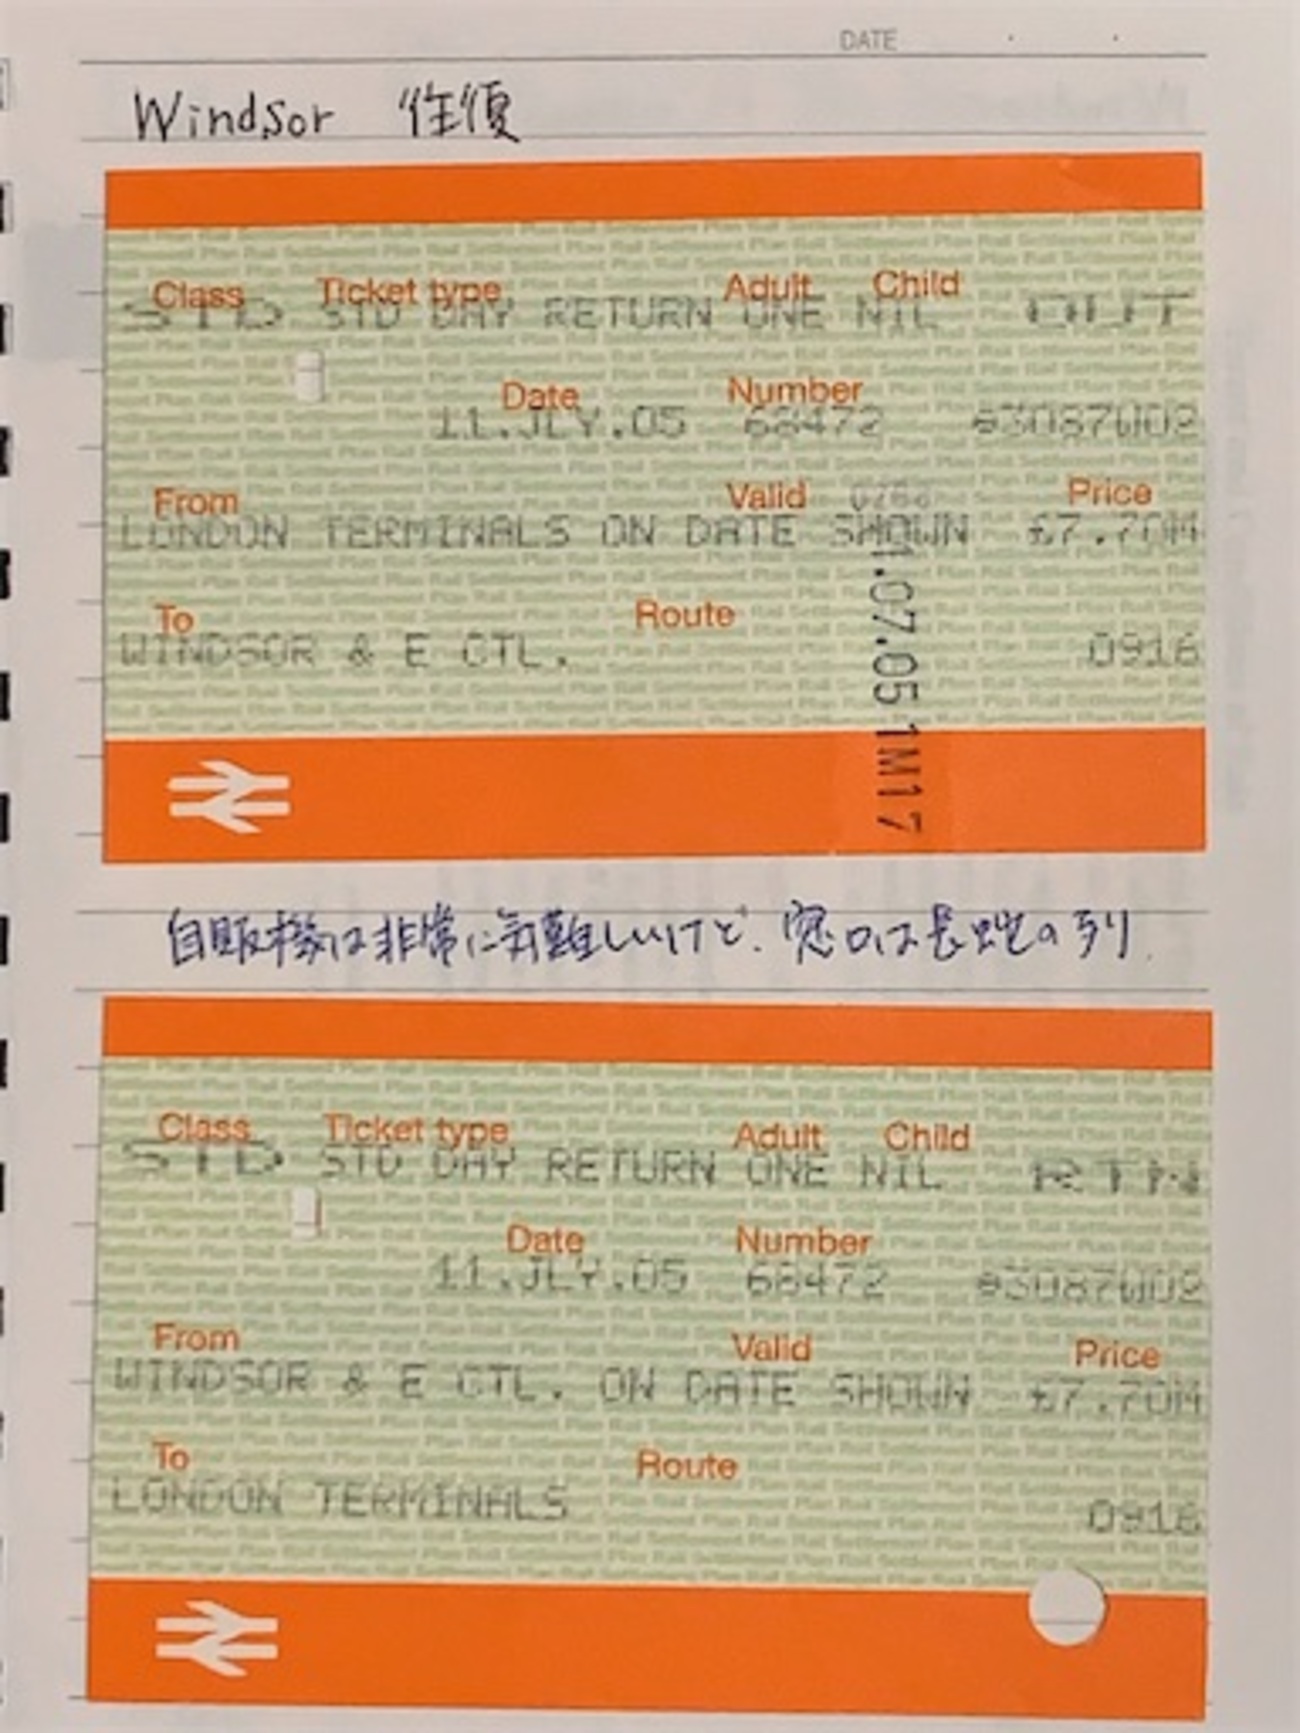 DATE
Windsor 往復
Class Ticket type Adult Child
STD STD DAY RETURN ONE NIL OUT
Date Number
11.JLY.05 68472 3087W02
From Valid Price
LONDON TERMINALS ON DATE SHOWN £7.70M
1.07.05 1M17
To Route
WINDSOR & E CTL. 0916
自販機は非常に気難しいけど、窓口は長蛇の列
Class Ticket type Adult Child
STD STD DAY RETURN ONE NIL RTN
Date Number
11.JLY.05 68472 3087W02
From Valid Price
WINDSOR & E CTL. ON DATE SHOWN £7.70M
To Route
LONDON TERMINALS 0916